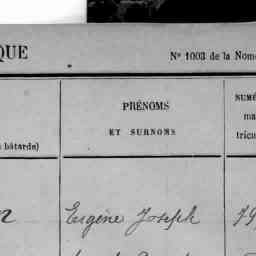 QUE
Nº 1003 de la Nome
PRÉNOMS
ET SURNOMS
NUMÉ
ma
tric
bâtarde)
Eugène Joseph